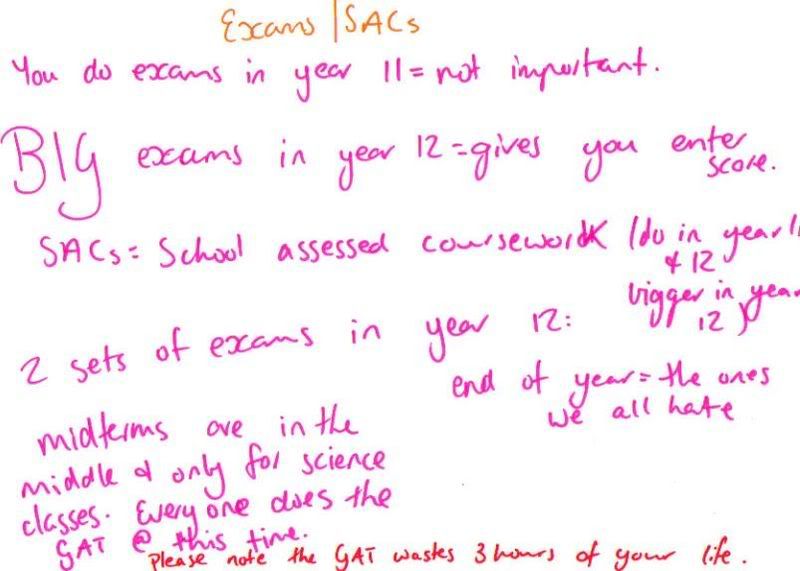 Exams | SACs
You do exams in year 11 = not important.
BIG exams in year 12 = gives you enter
score.
SACs = School assessed coursework (do in year 11
& 12
bigger in year
12)
2 sets of exams in year 12:
end of year = the ones
we all hate
midterms are in the
middle & only for science
classes. Everyone does the
GAT @ this time.
Please note the GAT wastes 3 hours of your life.